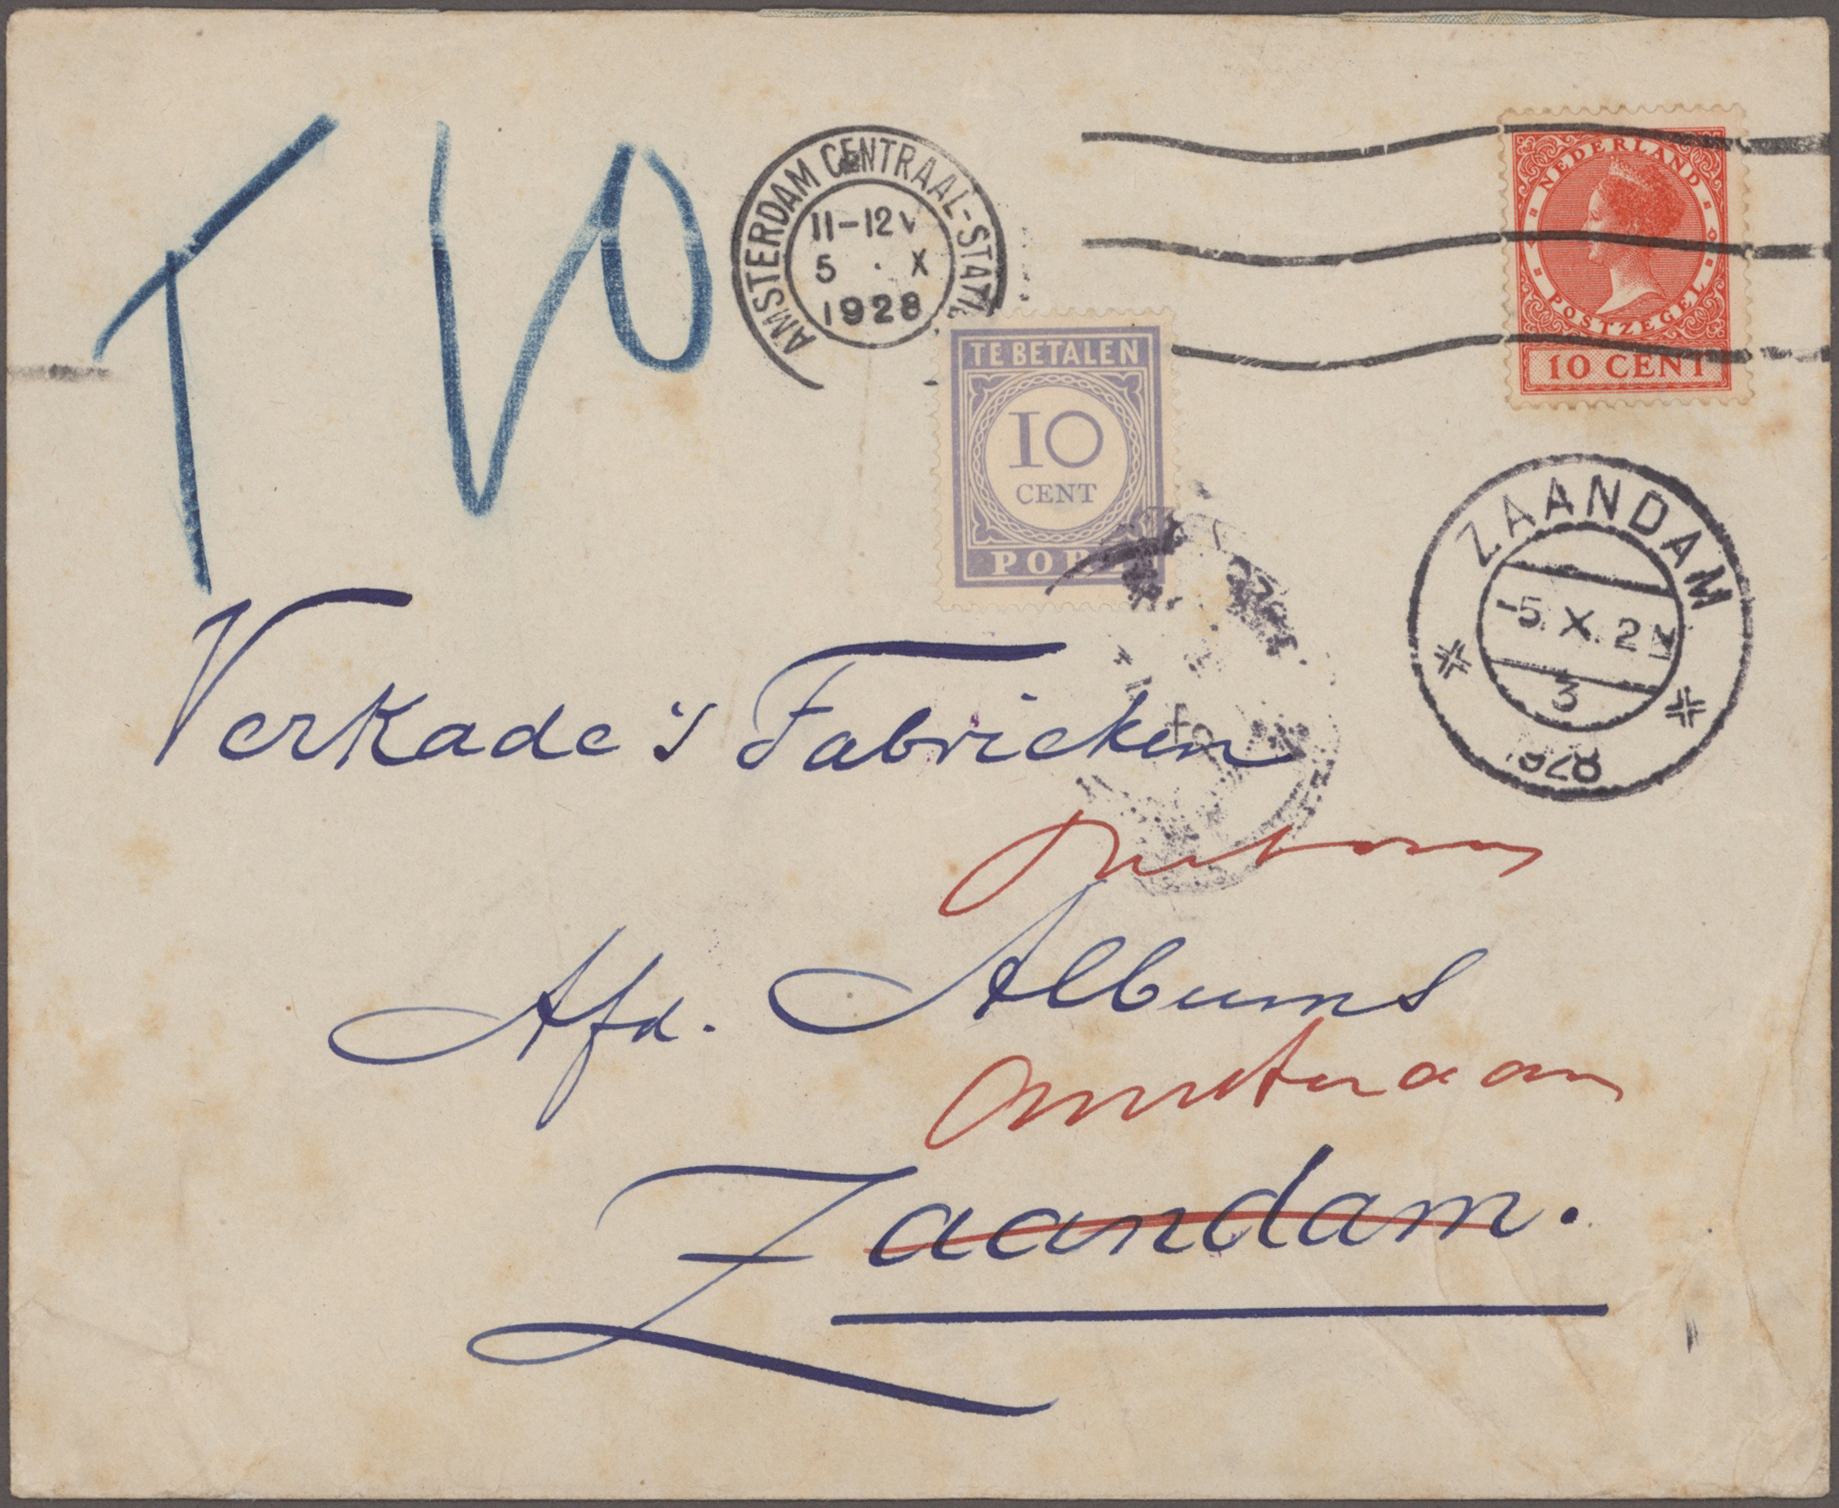 T 10
AMSTERDAM CENTRAAL-STAT
11-12V
5 . X
1928
NEDERLAND
POSTZEGEL
10 CENT
TE BETALEN
10
CENT
PORT
ZAANDAM
-5.X.2
3
1928
Verkade's Fabrieken
Afd. Albums
Amsterdam
Zaandam.